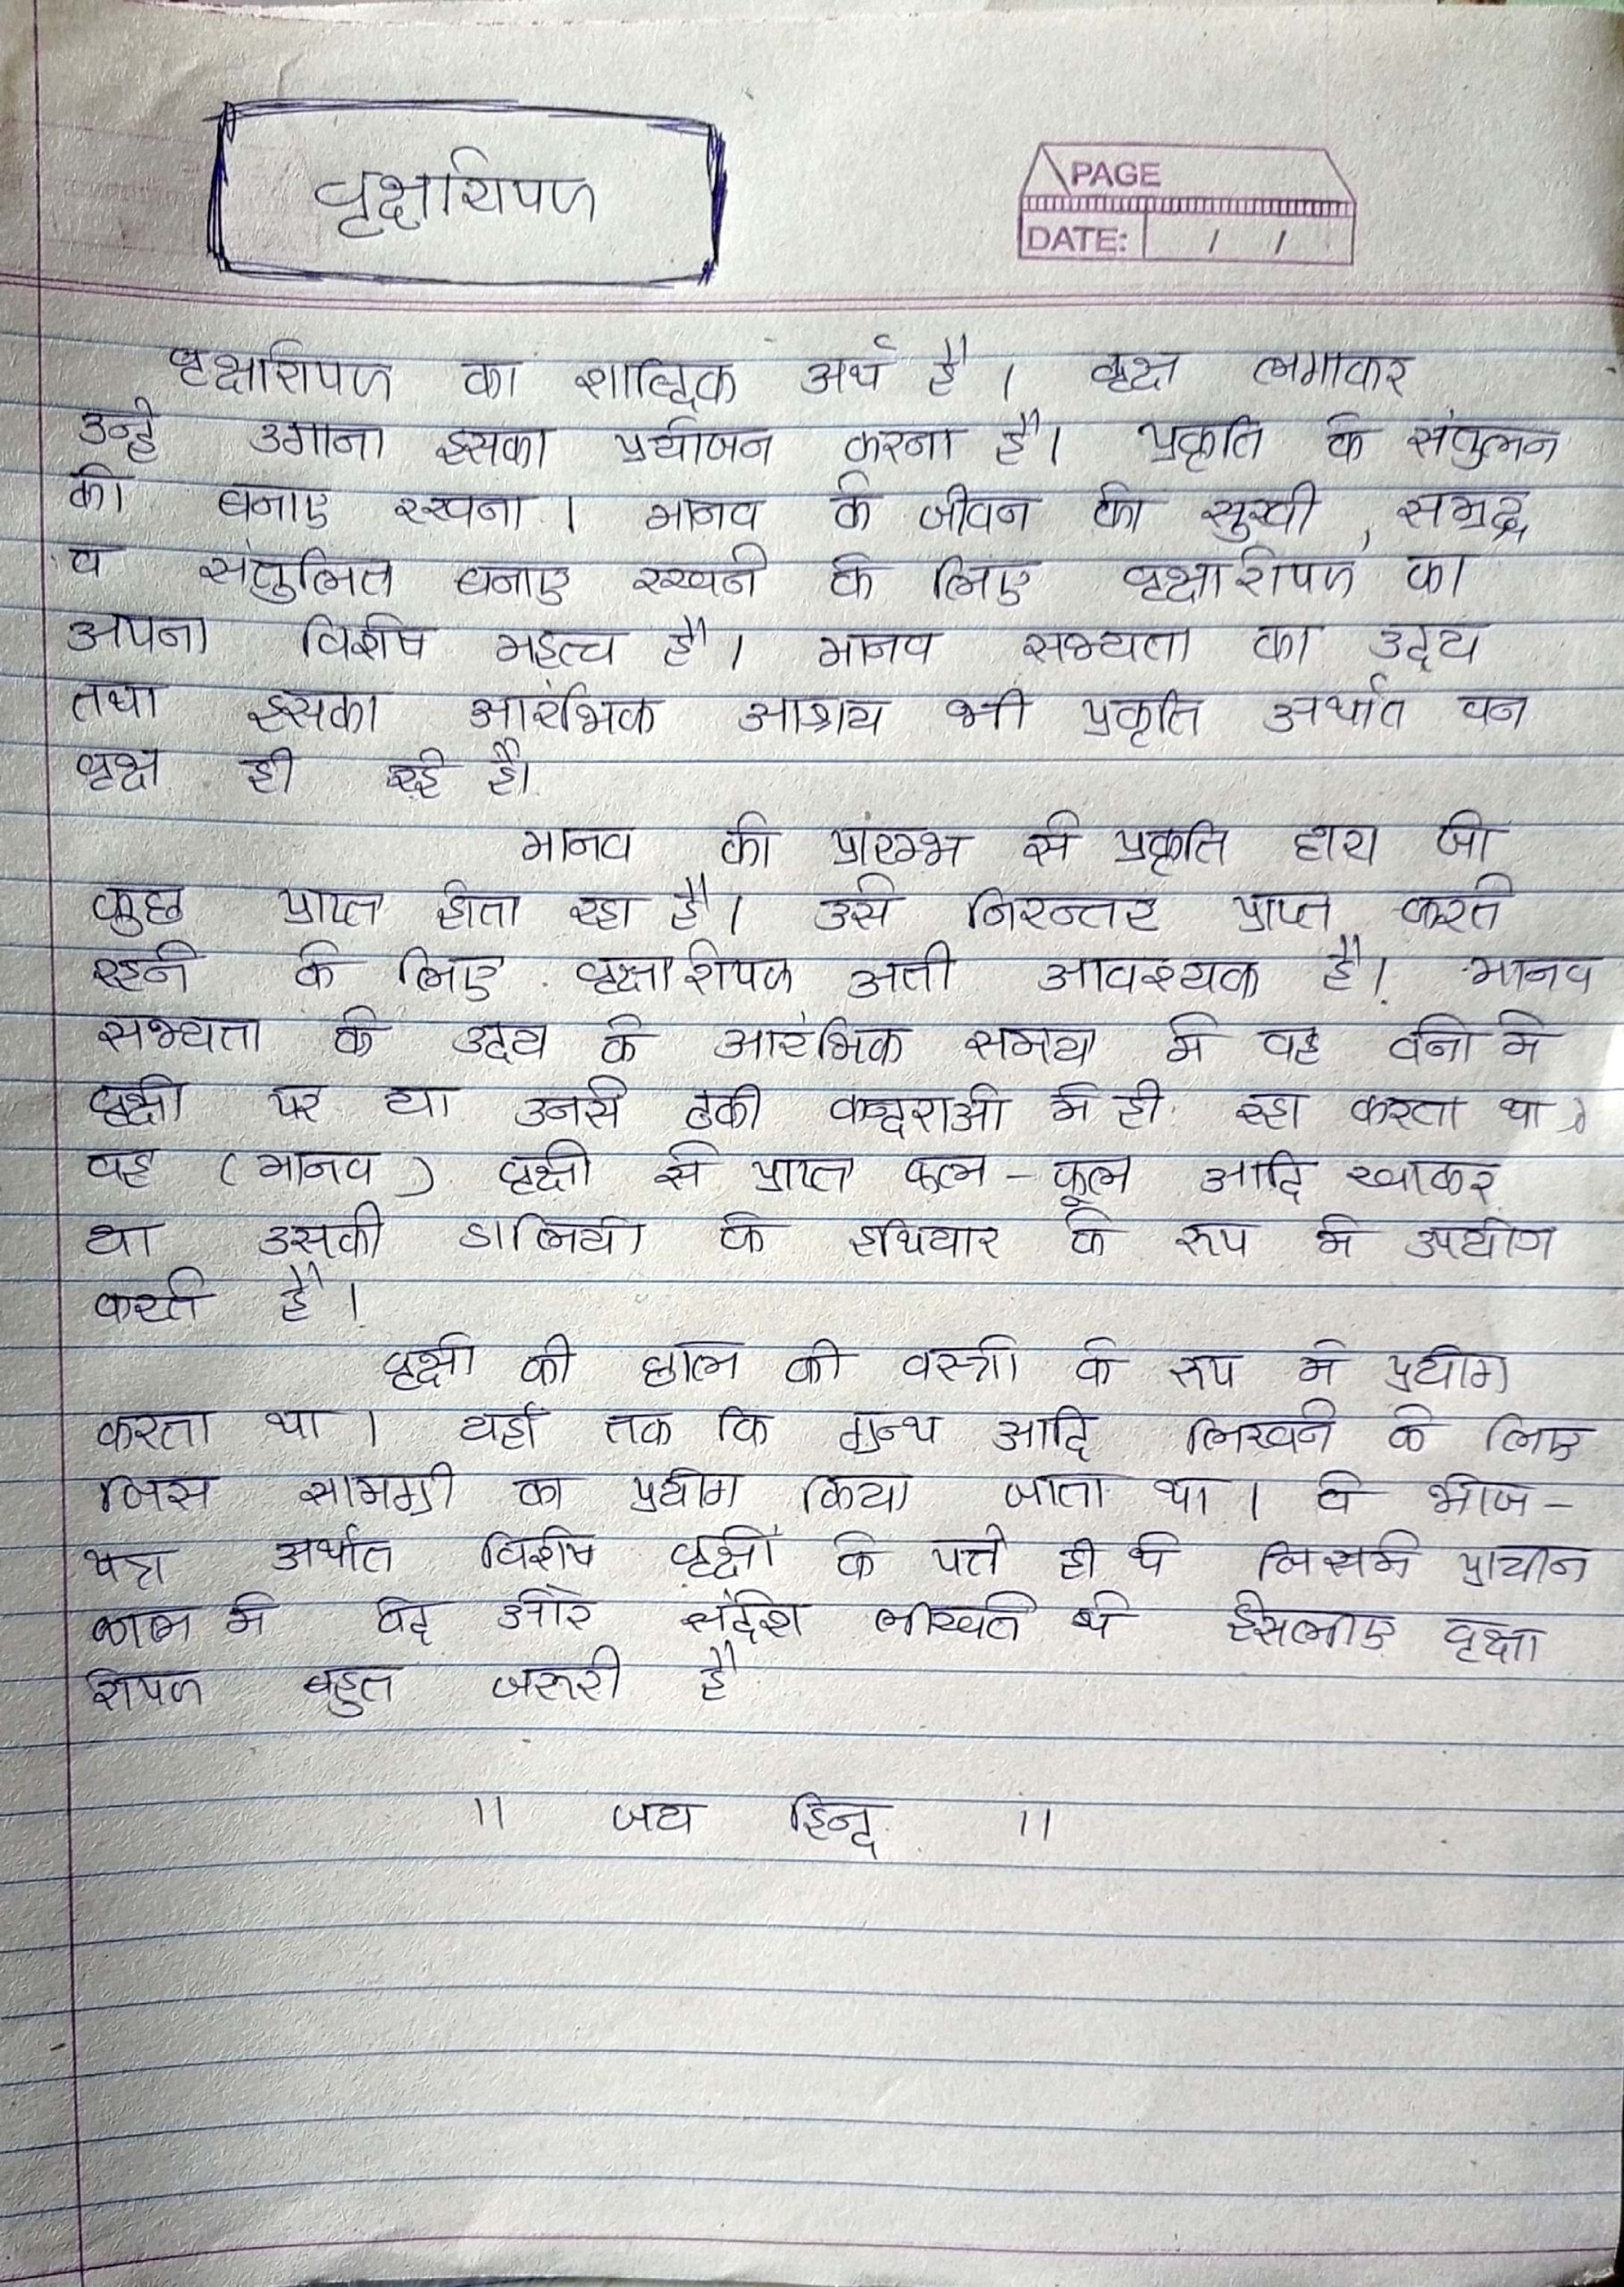 वृक्षारोपण
PAGE
DATE: / /
वृक्षारोपण का शाब्दिक अर्थ है । वृक्ष लगाकर
उन्हे उगाना इसका प्रयोजन करना है। प्रकृति के संतुलन
को बनाए रखना । मानव के जीवन को सुखी, समृद्ध
व संतुलित बनाए रखने के लिए वृक्षारोपण का
अपना विशेष महत्व है । मानव सभ्यता का उदय
तथा इसका आरंभिक आश्रय भी प्रकृति अर्थात वन
वृक्ष ही रहे है।
मानव को प्रारम्भ से प्रकृति द्वारा जो
कुछ प्राप्त होता रहा है । उसे निरन्तर प्राप्त करते
रहने के लिए वृक्षारोपण अती आवश्यक है । मानव
सभ्यता के उदय के आरंभिक समय मे वह वनो मे
वृक्षो पर या उनसे ढकी कन्दराओ मे ही रहा करता था ।
वह (मानव) वृक्षो से प्राप्त फल - फूल आदि खाकर
या उसकी डालियो के हथियार के रूप मे उपयोग
करते है ।
वृक्षो की छाल को वस्त्रो के रूप मे प्रयोग
करता था । यहाँ तक कि ग्रन्थ आदि लिखने के लिए
जिस सामग्री का प्रयोग किया जाता था । वे भोज -
पत्र अर्थात विशेष वृक्षों के पत्ते ही थे जिसमे प्राचीन
काल मे वेद और संदेश लीखते थे इसलीए वृक्षा
रोपण बहुत जरूरी है
।। जय हिन्द ।।